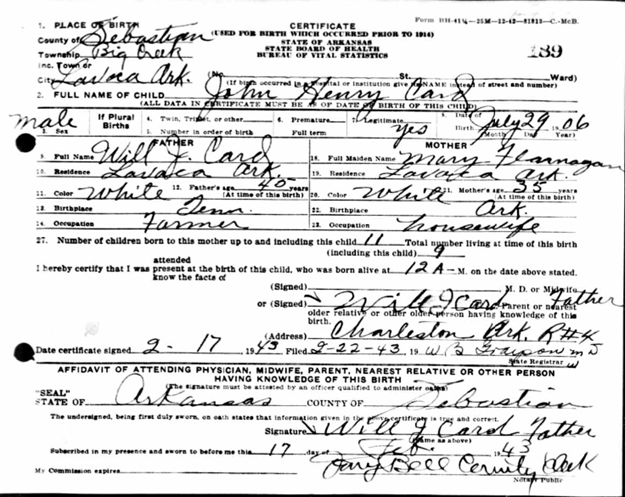 Form BH-41½-25M-12-42-81813-C.-McB.
1. PLACE OF BIRTH
CERTIFICATE
County of Sebastian
(USED FOR BIRTH WHICH OCCURRED PRIOR TO 1914)
STATE OF ARKANSAS
Township Big Creek
STATE BOARD OF HEALTH
BUREAU OF VITAL STATISTICS
139
Inc. Town or
City Lavaca Ark. (No. St. Ward)
(If birth occurred in a hospital or institution give its NAME instead of street and number)
2. FULL NAME OF CHILD John Henry Card
(ALL DATA IN CERTIFICATE MUST BE AS OF DATE OF BIRTH OF THIS CHILD)
male If Plural Births 4. Twin, Triplet, or other 6. Premature 7. Legitimate yes 8. Date of Birth July 29 1906
3. Sex 5. Number in order of birth Full term Month Day Year
FATHER MOTHER
9. Full Name Will J. Card 18. Full Maiden Name Mary Flannagan
10. Residence Lavaca Ark. 19. Residence Lavaca Ark.
11. Color White 12. Father's age 40 years (At time of this birth) 20. Color White 21. Mother's age 35 years (At time of this birth)
13. Birthplace Tenn. 22. Birthplace Ark.
14. Occupation Farmer 23. Occupation housewife
27. Number of children born to this mother up to and including this child 11 Total number living at time of this birth
(including this child) 9
attended
I hereby certify that I was present at the birth of this child, who was born alive at 12 A-M. on the date above stated.
know the facts of
(Signed) M. D. or Midwife
or (Signed) Will J Card Father Parent or nearest
older relative or other older person having knowledge of this
birth.
(Address) Charleston Ark. R#4
Date certificate signed 2-17 1943 Filed 2-22-43 19 W B Grayson M D
State Registrar
AFFIDAVIT OF ATTENDING PHYSICIAN, MIDWIFE, PARENT, NEAREST RELATIVE OR OTHER PERSON
HAVING KNOWLEDGE OF THIS BIRTH
"SEAL" (The signature must be attested by an officer qualified to administer oaths)
STATE OF Arkansas COUNTY OF Sebastian
The undersigned, being first duly sworn, on oath states that information given in the above certificate is true and correct.
Signature Will J Card Father
(Name as above)
Subscribed in my presence and sworn to before me this 17 day of Feb. 1943
Bell County Clerk
My Commission expires Notary Public